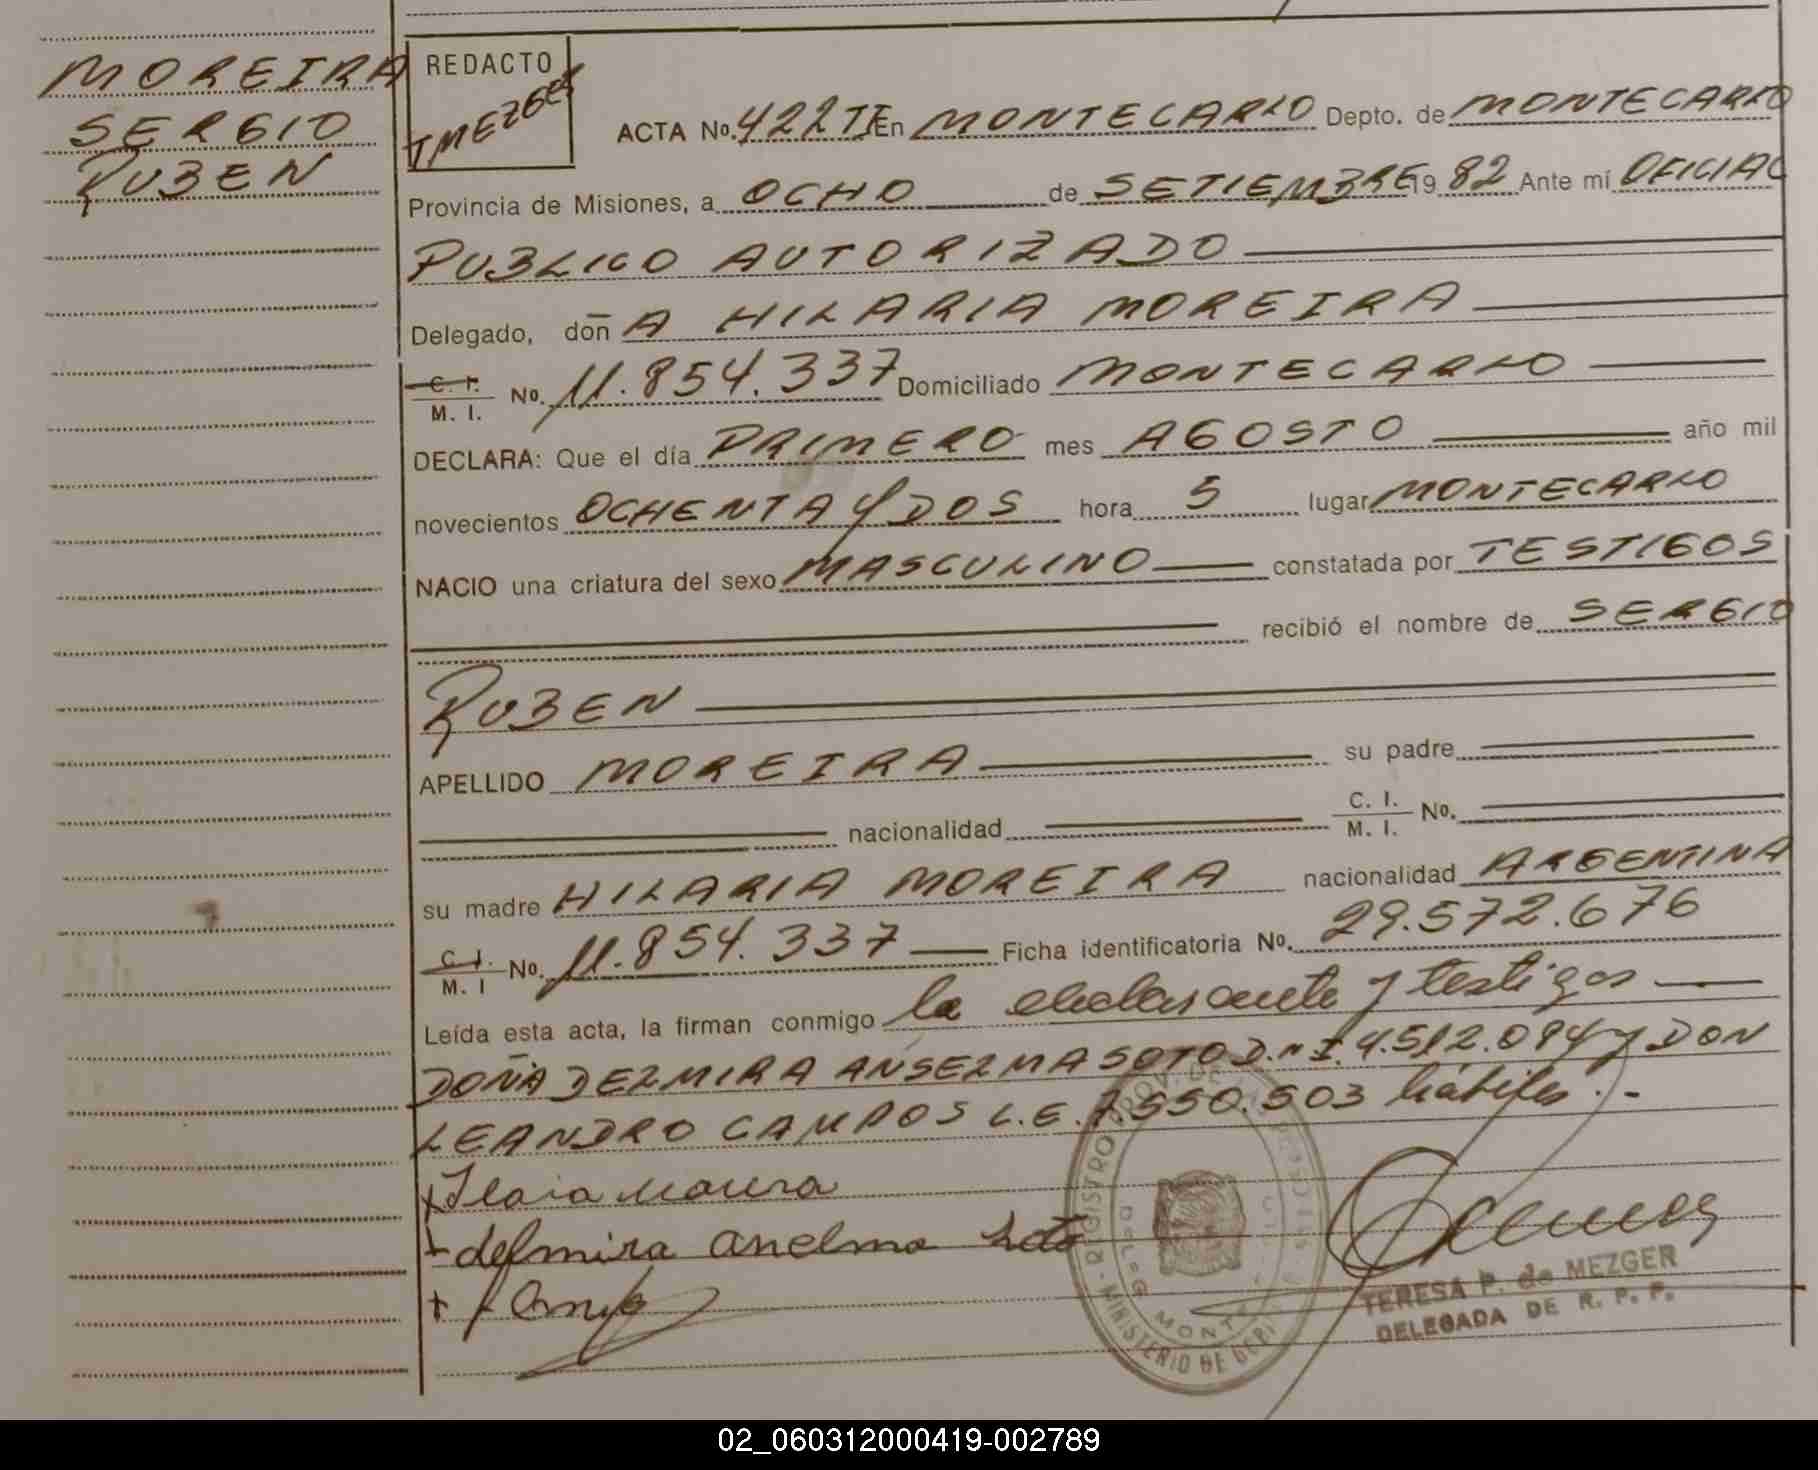 MOREIRA
SERGIO
RUBEN
REDACTO
TMEZGER
ACTA No. 422 TE En MONTECARLO Depto. de MONTECARLO
Provincia de Misiones, a OCHO de SETIEMBRE 19 82 Ante mi OFICIAL
PUBLICO AUTORIZADO
Delegado, doñA HILARIA MOREIRA
C. I. / M. I. No. 11.854.337 Domiciliado MONTECARLO
DECLARA: Que el día PRIMERO mes AGOSTO año mil
novecientos OCHENTA Y DOS hora 5 lugar MONTECARLO
NACIO una criatura del sexo MASCULINO constatada por TESTIGOS
recibió el nombre de SERGIO
RUBEN
APELLIDO MOREIRA su padre
nacionalidad C. I. / M. I. No.
su madre HILARIA MOREIRA nacionalidad ARGENTINA
C. I. / M. I No. 11.854.337 Ficha identificatoria No. 29.572.676
Leída esta acta, la firman conmigo la declarante y testigos
DOÑA DELMIRA ANSELMA SOTO D.N.I. 4.512.094 y DON
LEANDRO CAMPOS L.E. 7.550.503 hábiles.-
delmira anelma soto
REGISTRO PROV. DE
MINISTERIO DE
TERESA P. de MEZGER
DELEGADA DE R. P. P.
02_060312000419-002789